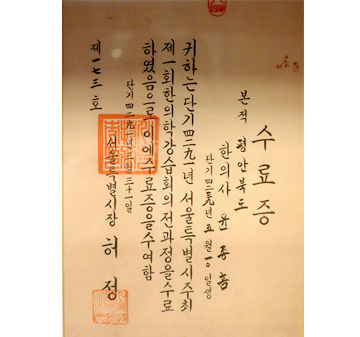 수료증
본적 평안북도
한의사 윤종흠
단기 월一○일생
귀하는단기四二九一년서울특별시주최
제一회한의학강습회의전과정을수료
하였음으로이에수료증을수여함
단기四二九一년三월三十一일
서울특별시장 허정
제一七三호